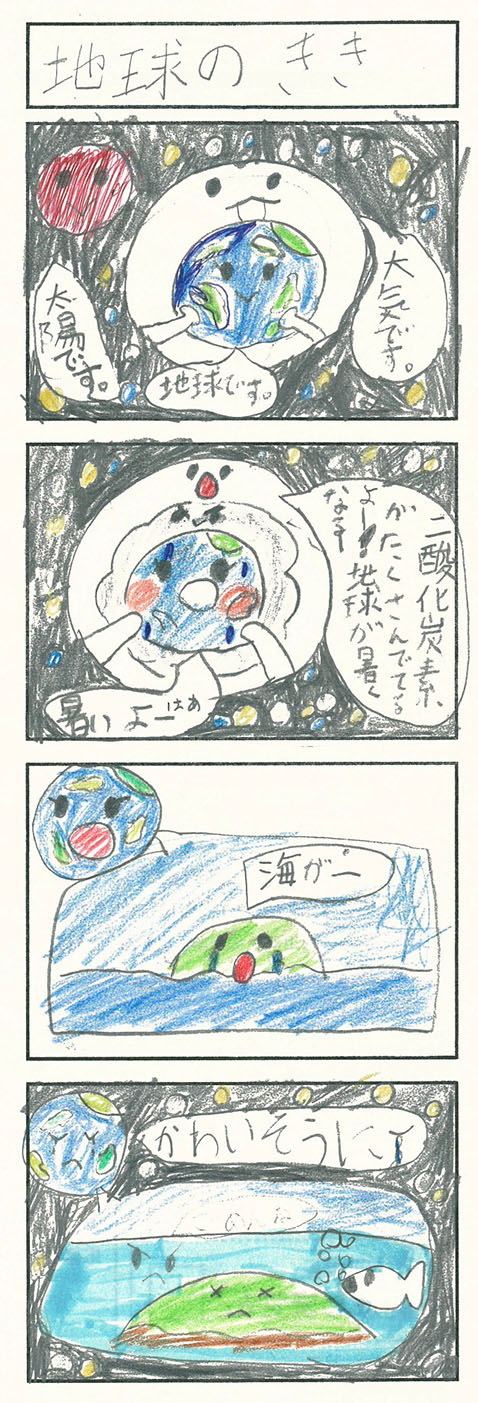 地球のきき
大気です。
地球です。
太陽です。
二酸化炭素、
がたくさんでてる
よー!地球が暑く
なる
暑いよー
はぁ
海がー
かわいそうに